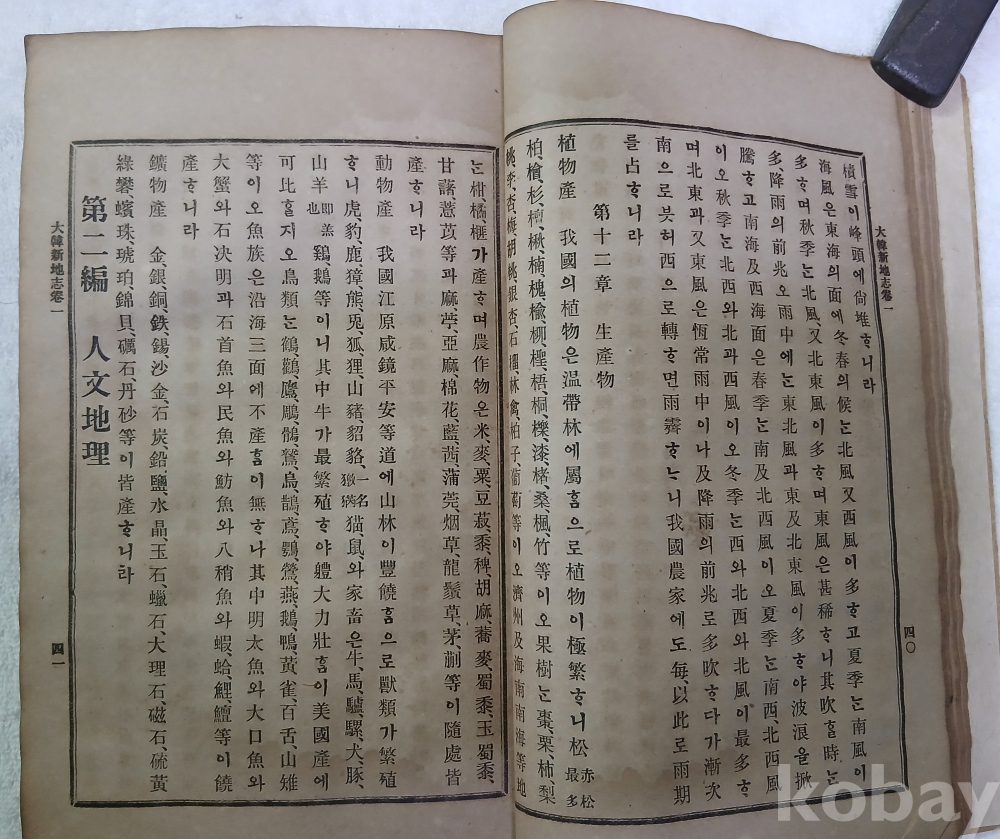 大韓新地志卷一
四〇
積雪이峰頭에尙堆ᄒᆞ니라
海風은東海의面에冬春의候ᄂᆞᆫ北風又西風이多ᄒᆞ고夏季ᄂᆞᆫ南風이
多ᄒᆞ며秋季ᄂᆞᆫ北風、又北東風이多ᄒᆞ며東風은甚稀ᄒᆞ니其吹ᄒᆞᆯ時ᄂᆞᆫ
多降雨의前兆오雨中에ᄂᆞᆫ東北風과東及北東風이多ᄒᆞ야波浪을掀
騰ᄒᆞ고南海及西海面은春季ᄂᆞᆫ南及北西風이오夏季ᄂᆞᆫ南西、北西風
이오秋季ᄂᆞᆫ北西와北과西風이오冬季ᄂᆞᆫ西와北西와北風이最多ᄒᆞ
며北東과又東風은恆常雨中이나及降雨의前兆로多吹ᄒᆞ다가漸次
南으로븟허西으로轉ᄒᆞ면雨霽ᄒᆞᄂᆞ니我國農家에도每、以此로雨期
를占ᄒᆞ니라
第十二章 生產物
植物產 我國의植物은温帶林에屬홈으로植物이極繁ᄒᆞ니松赤松最多
柏、檜、杉、檀、楸、楠、槐、楡、柳、樫、梧、桐、櫟、漆、楮、桑、楓、竹等이오果樹ᄂᆞᆫ棗、栗、柿、梨
桃、李、杏、梅、胡桃、銀杏、石榴、林禽、柏子、葡萄等이오濟州及海南南海等地
ᄂᆞᆫ柑、橘、榧가產ᄒᆞ며農作物은米、麥、粟、豆、菽、黍、稗、胡麻、蕎麥、蜀黍、玉蜀黍、
甘藷、薏苡等과麻、苧、亞麻、棉花、藍、茜、蒲、莞、烟草、龍鬚草、茅、萷等이隨處皆
產ᄒᆞ니라
動物產 我國江原咸鏡平安等道에山林이豐饒홈으로獸類가繁殖
ᄒᆞ니虎、豹、鹿、獐、熊、兎、狐、狸、山豬、貂、貉、一名猫、鼠와家畜은牛、馬、驢、騾、犬、豚、
山羊卽羔也鷄、鵝等이니其中牛가最繁殖ᄒᆞ야軆大力壯홈이美國產에
可比ᄒᆞᆯ지오鳥類ᄂᆞᆫ鶴、鸛、鷹、鵰、鶻、鷲、烏、鵲、鳶、鶚、鶯、燕、鵝、鴨、黃雀、百舌、山雉
等이오魚族은沿海三面에不產홈이無ᄒᆞ나其中明太魚와大口魚와
大蟹와石决明과石首魚와民魚와魴魚와八稍魚와蝦、蛤、鯉、鱣等이饒
產ᄒᆞ니라
鑛物產 金、銀、銅、鉄、錫、沙金、石炭、鉛、鹽、水晶、玉石、蠟石、大理石、磁石、硫黃
綠礬、蠙珠、琥珀、錦貝、礪石、丹砂等이皆產ᄒᆞ니라
第二編 人文地理
大韓新地志卷一
四一
kobay